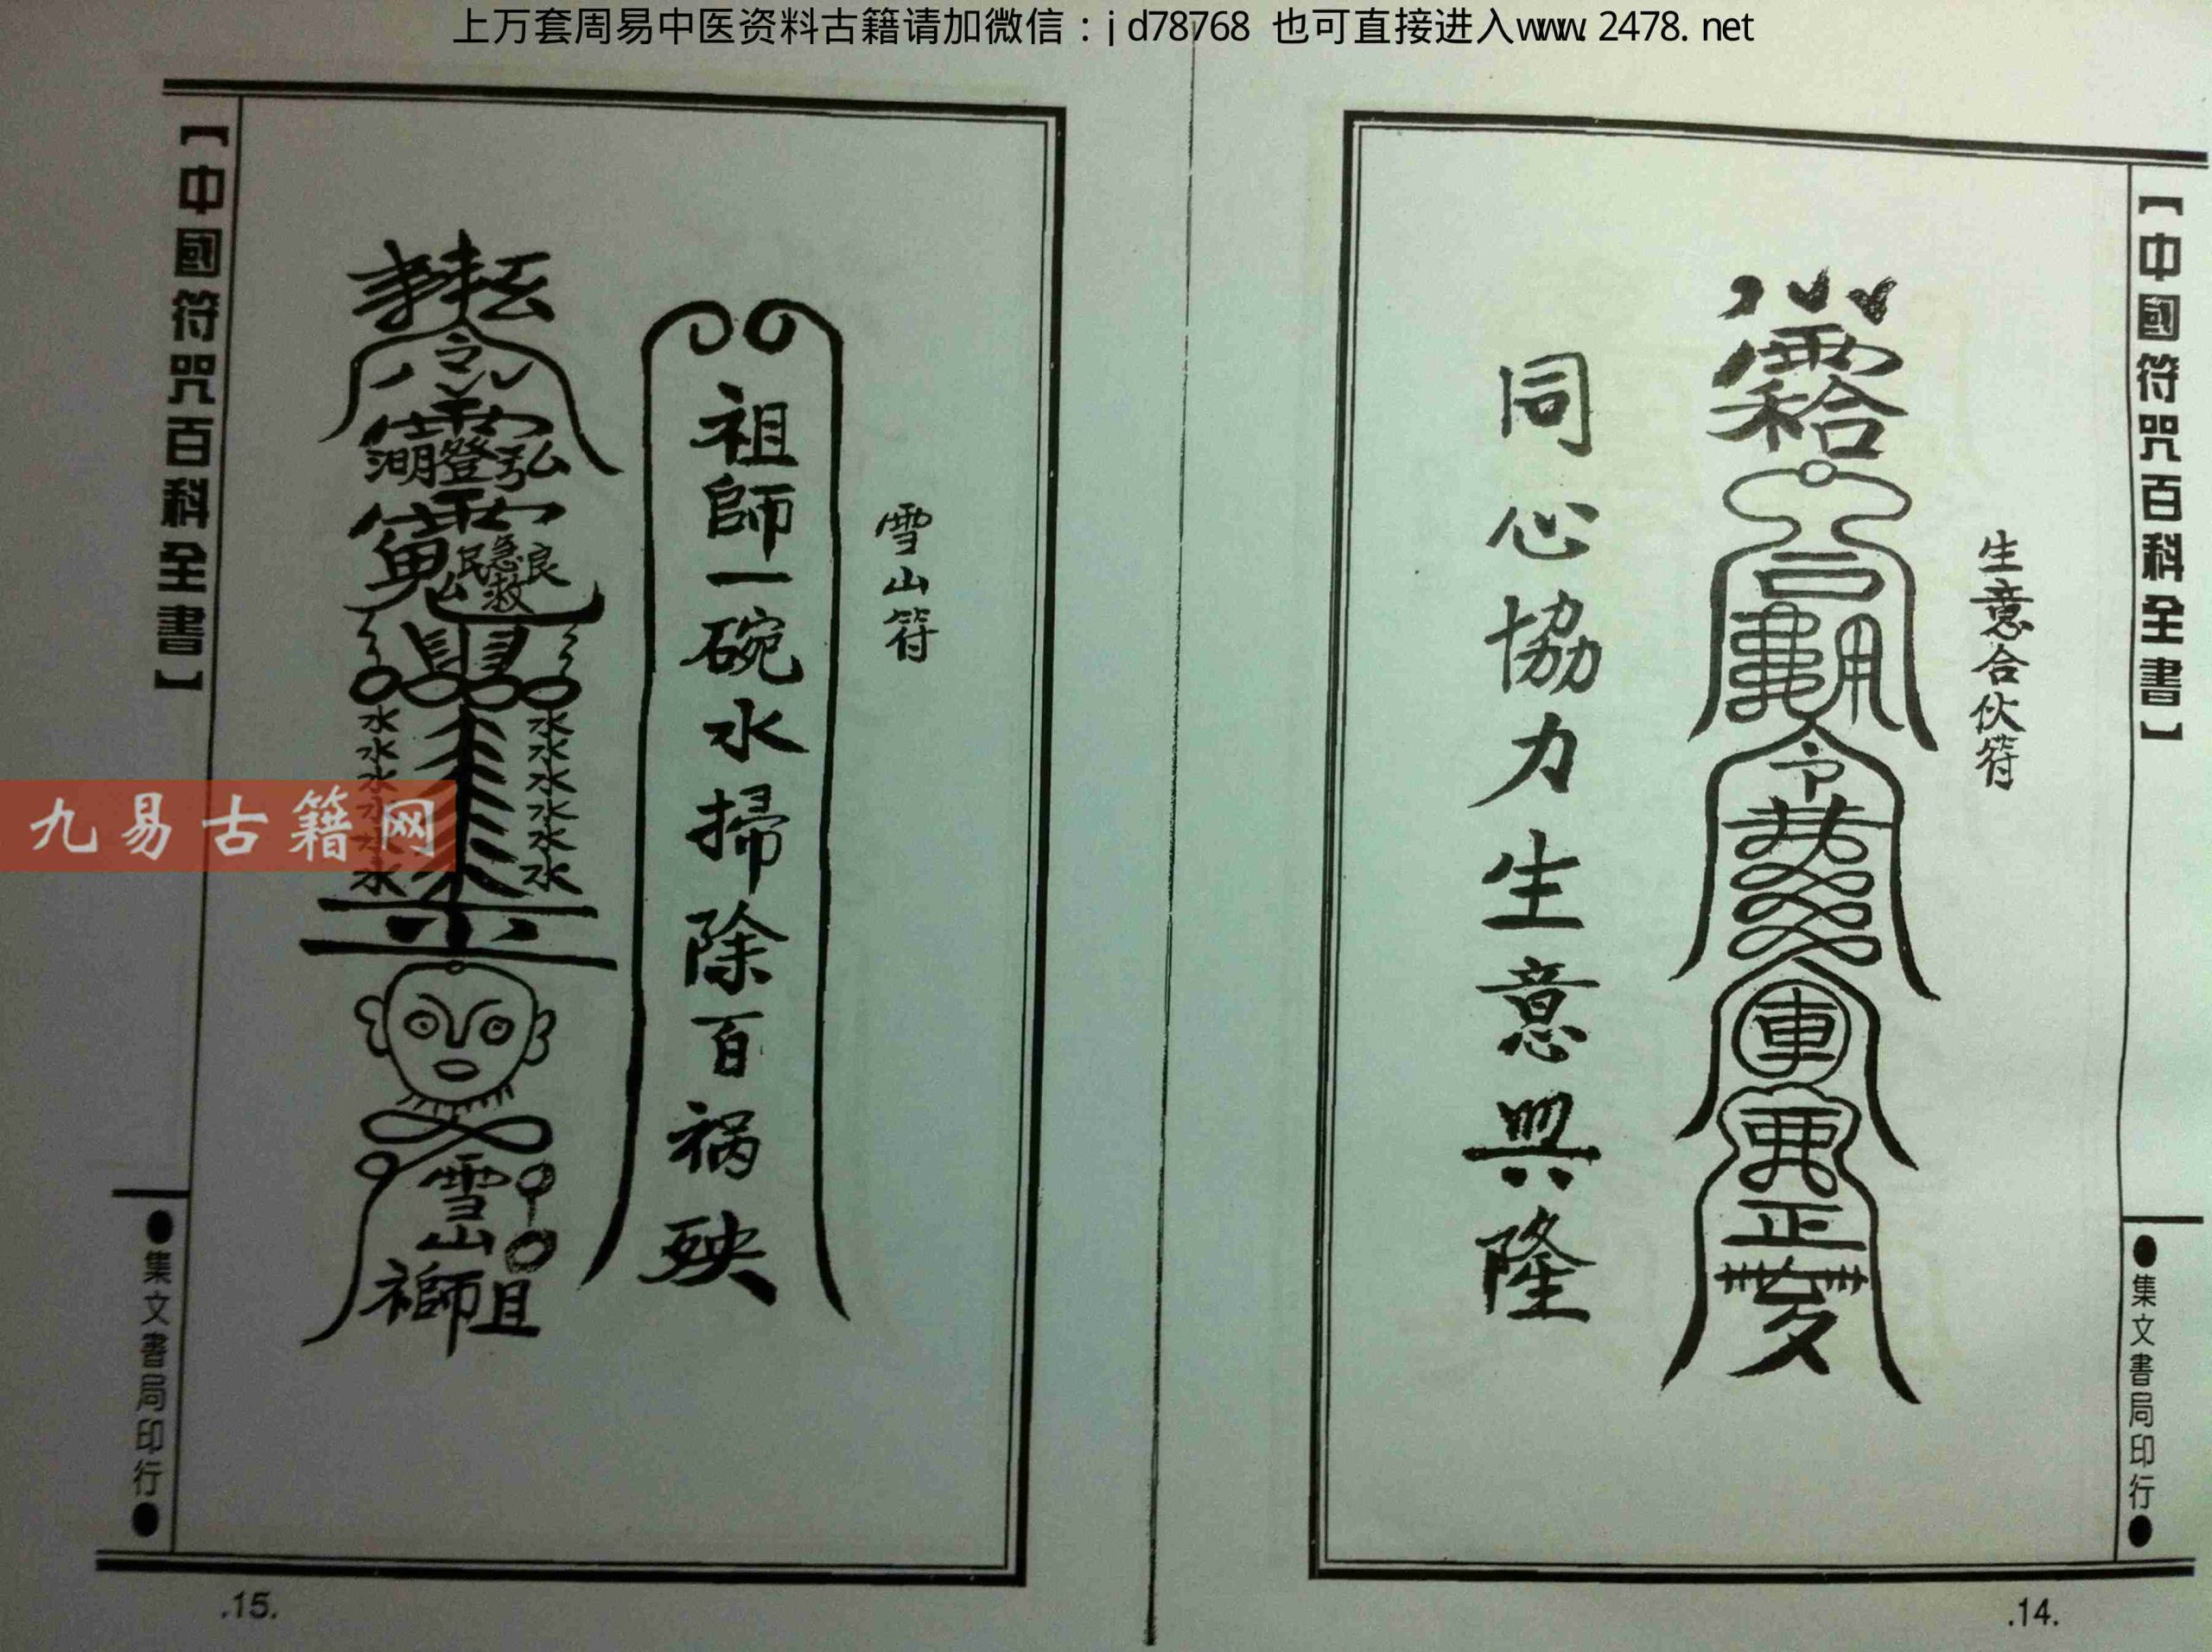 上万套周易中医资料古籍请加微信：jd78768 也可直接进入www.2478.net
【中國符咒百科全書】
生意合伙符
令
車
正
同心協力生意興隆
●集文書局印行●
.14.
雪山符
祖師一碗水掃除百禍殃
令
水水水水水水
水水水水水水
雪山
祖師
【中國符咒百科全書】
●集文書局印行●
.15.
九易古籍网